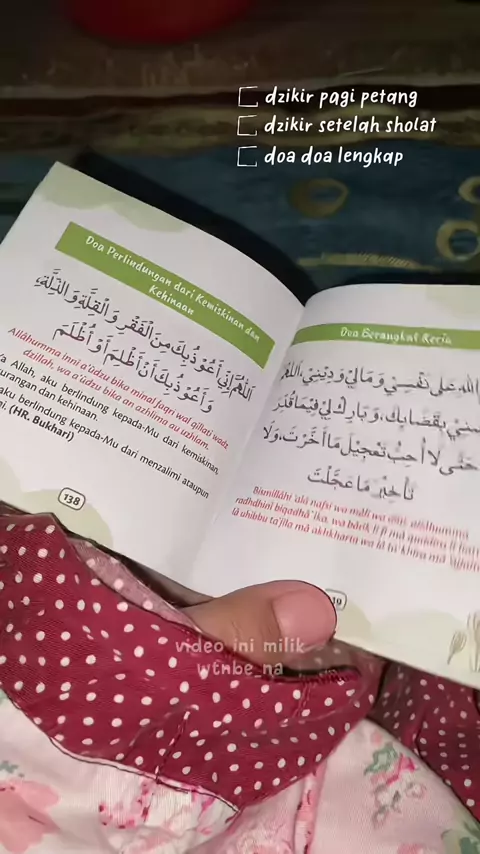 dzikir pagi petang
dzikir setelah sholat
doa doa lengkap
Doa Perlindungan dari Kemiskinan dan
Kehinaan
اَللّٰهُمَّ اِنِّيْ اَعُوْذُ بِكَ مِنَ الْفَقْرِ وَ الْقِلَّةِ وَ الذِّلَّةِ،
وَ اَعُوْذُ بِكَ اَنْ اَظْلِمَ اَوْ اُظْلَمَ
Allâhumma innî a'ûdzu bika minal faqri wal qillati wadz
dzillah, wa a'ûdzu bika an azhlima au uzhlam.
a Allah, aku berlindung kepada-Mu dari kemiskinan,
urangan dan kehinaan.
aku berlindung kepada-Mu dari menzalimi ataupun
i. (HR. Bukhari)
138
Doa Berangkat Kerja
اللهِ عَلَى نَفْسِيْ وَمَالِيْ وَدِيْنِيْ، اَللّٰهُمَّ
بِقَضَايِكَ، وَبَارِكْ لِيْ فِيْمَا قُدِّرَ
حَتَّى لَا اُحِبُّ تَعْجِيْلَ مَا اَخَّرْتَ، وَلَا
تَأْخِيْرَ مَا عَجَّلْتَ
Bismillâhi 'alâ nafsî wa mâlî wa dînî, allâhumma
radhdhinî biqadhâ'ika, wa bârik lî fî mâ
lâ uhibbu ta'jîla mâ akhkharta wa lâ
video ini milik
wtnbe na